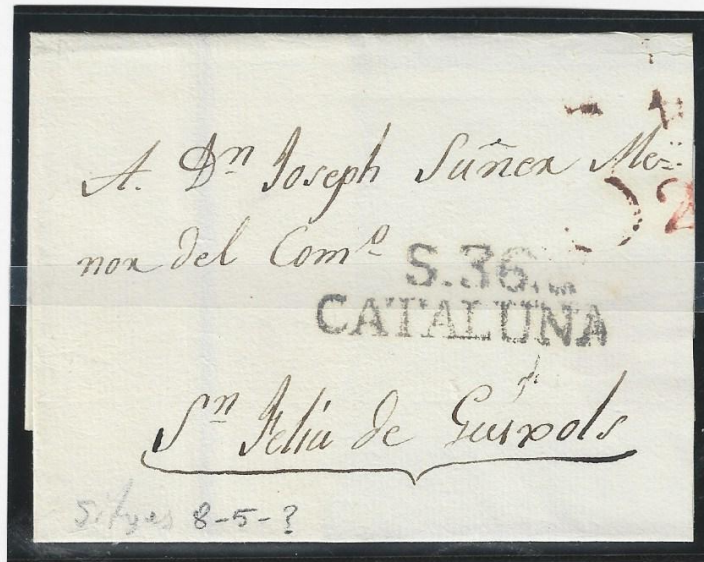 A. Dn Joseph Suñer Me=
nor del Como
S.36.
CATALUNA
Sn Feliu de Guíxols
Sitges 8-5-?